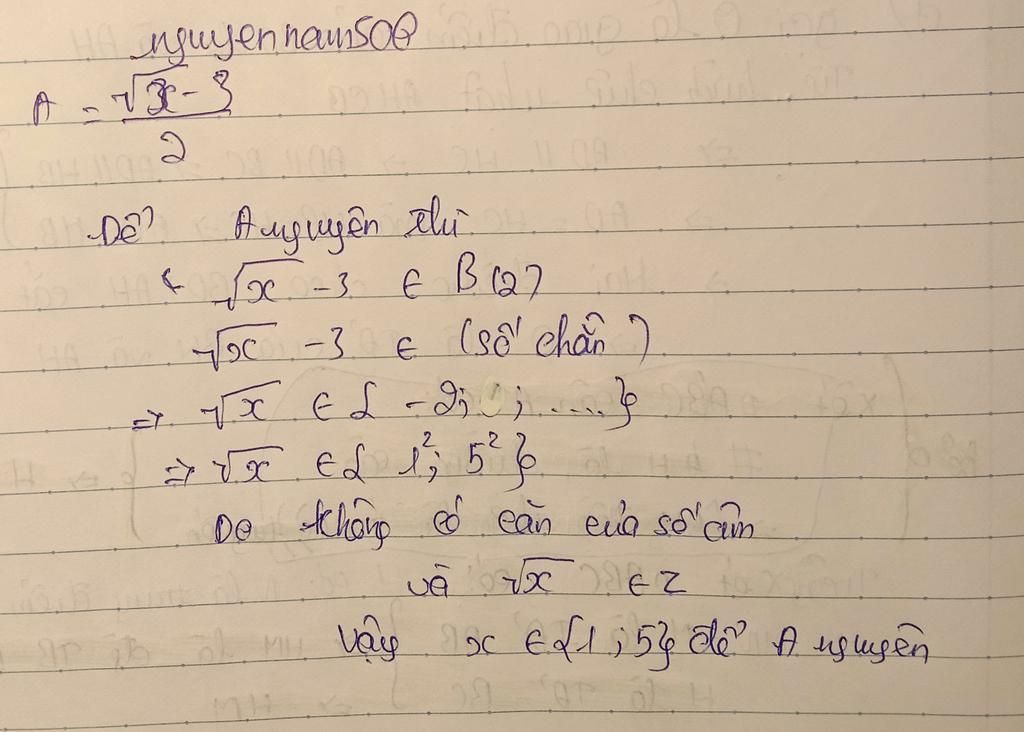 nguyennam50Q
A = √x - 3 / 2
Để A nguyên thì
√x - 3 ∈ B(2)
√x - 3 ∈ (số chẵn)
=> √x ∈ { -2; ; ....}
=> √x ∈ { 1²; 5² }
Do không có căn của số âm
và √x ∈ Z
Vậy x ∈ {1 ; 5} để A nguyên